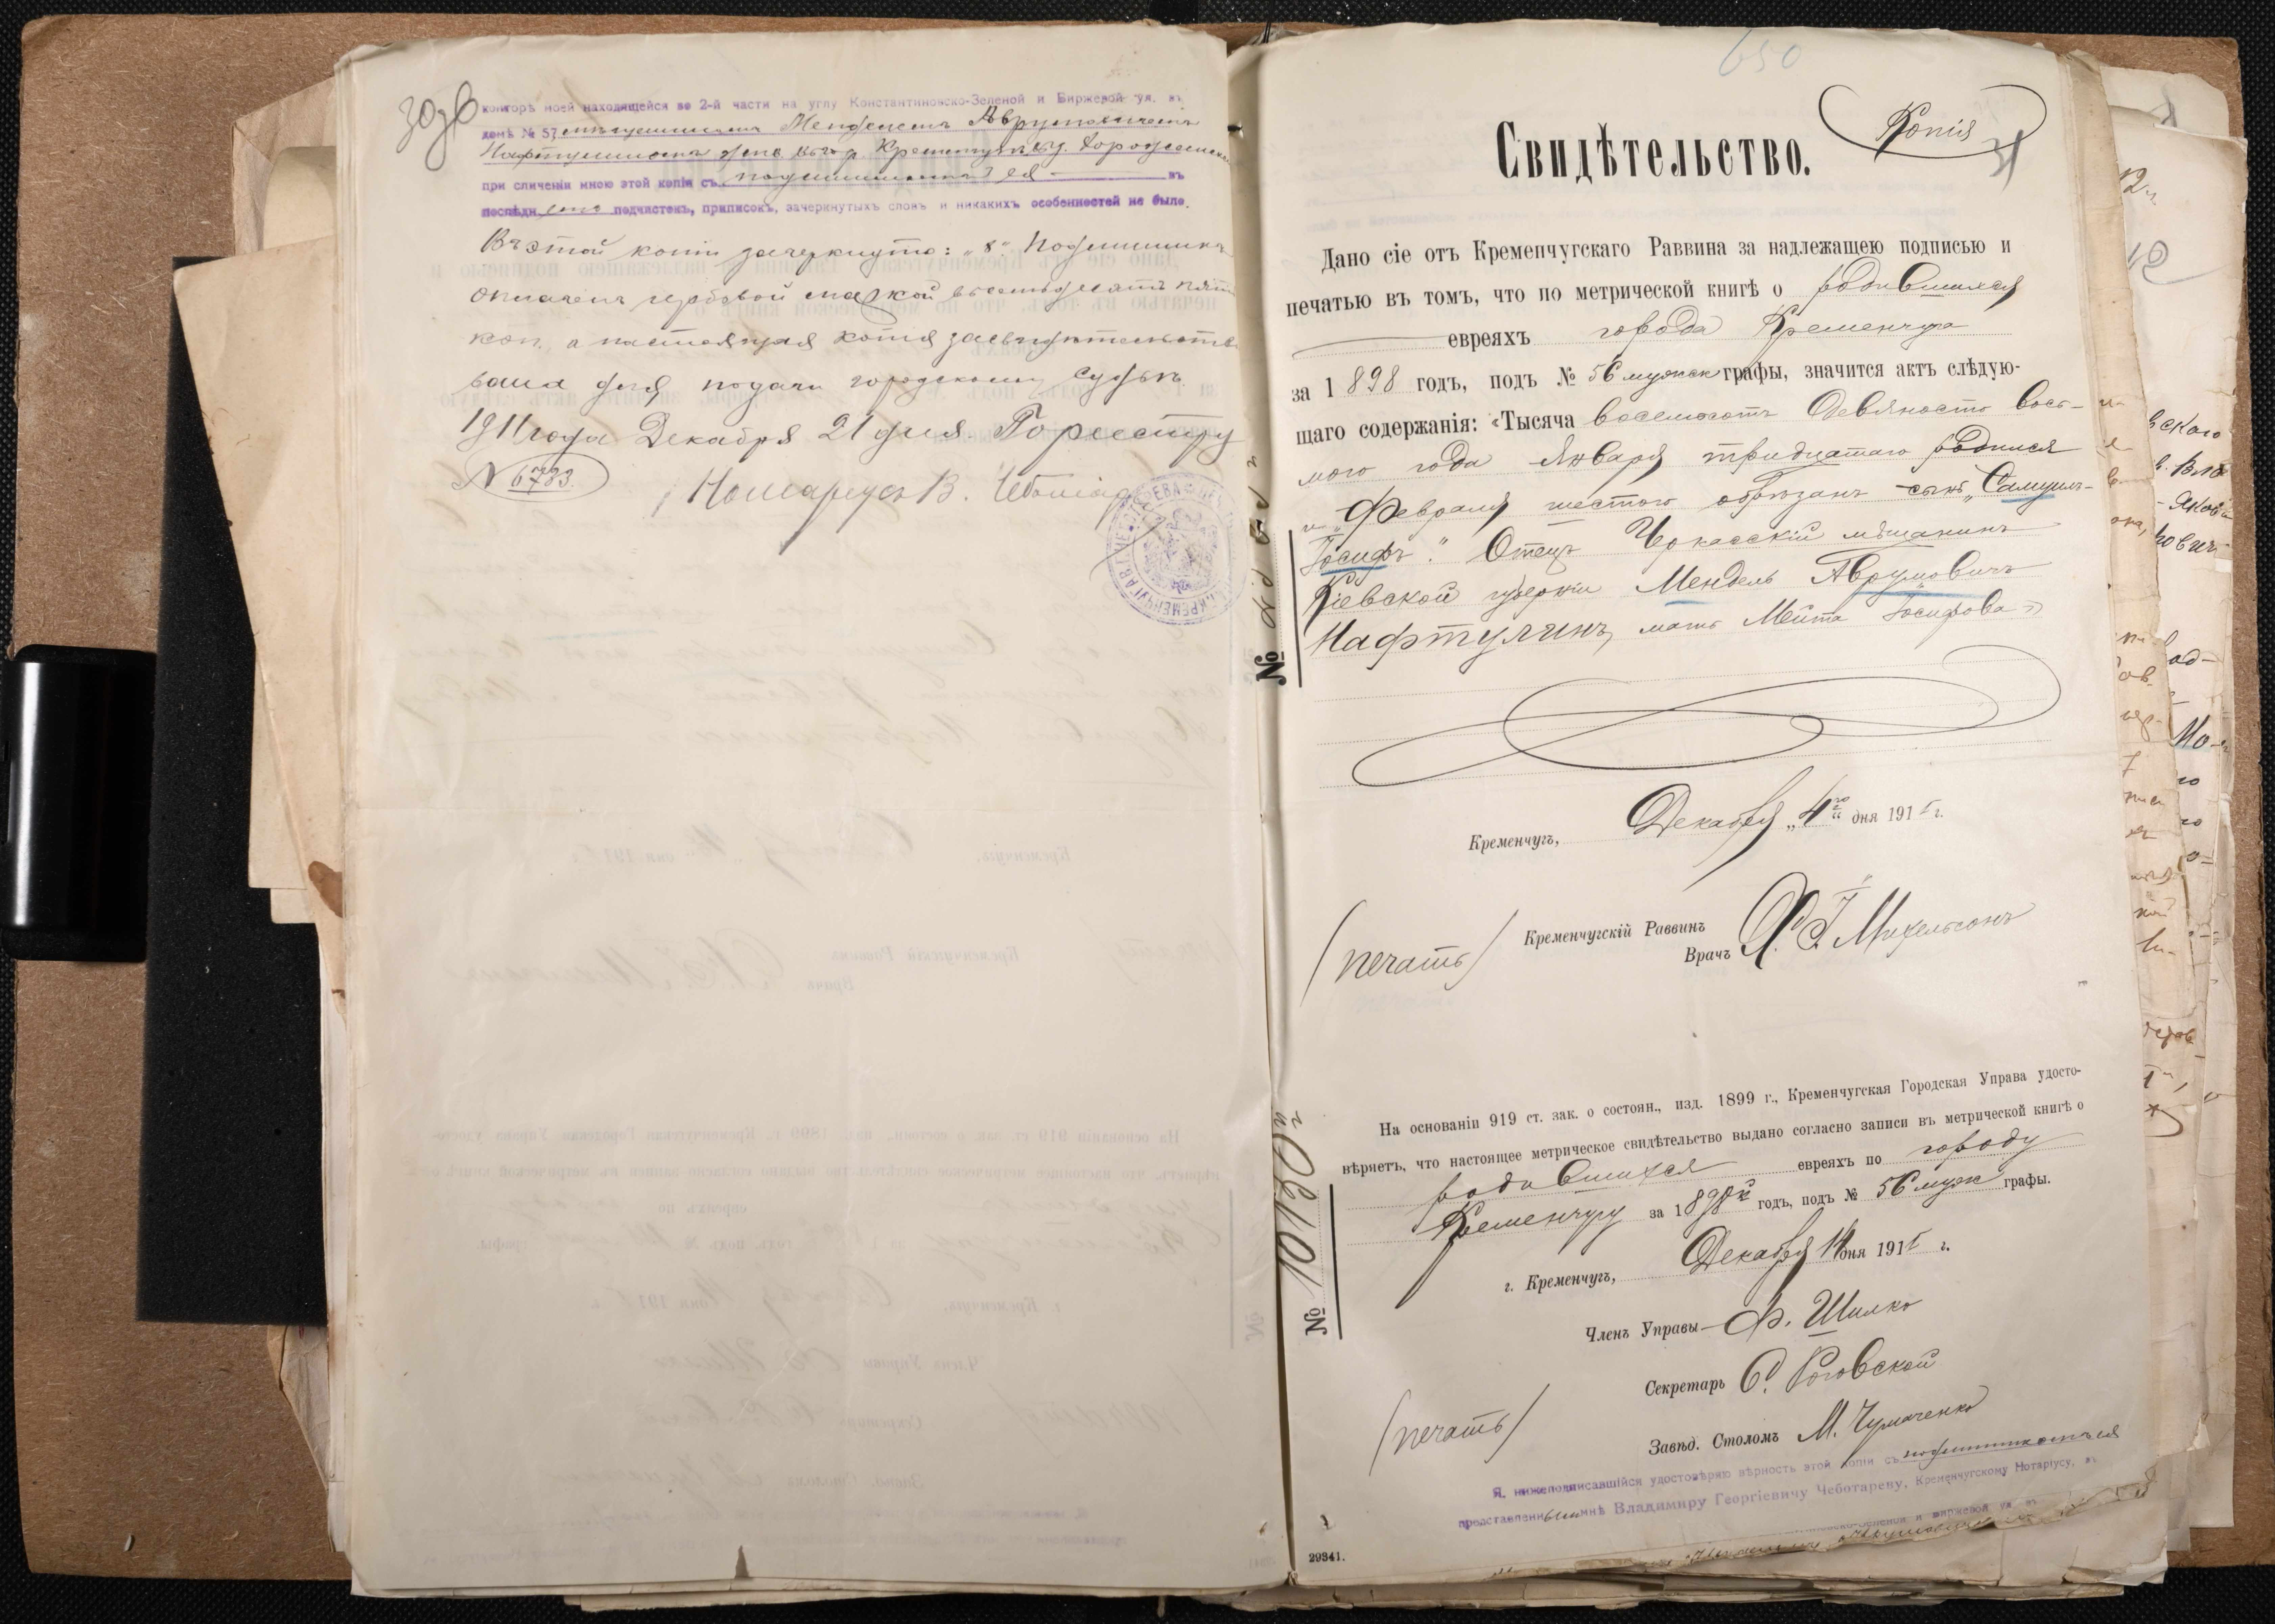 30 об
конторѣ моей находящейся во 2-й части на углу Константиновско-Зеленой и Биржевой ул. въ
домѣ № 57 мѣщаниномъ Менделемъ Аврумовичемъ
Нафтулинымъ жив. въ г. Кременчугѣ,
при сличеніи мною этой копіи съ подлинникомъ ея въ
послѣднемъ подчистокъ, приписокъ, зачеркнутыхъ словъ и никакихъ особенностей не было.
Въ этой копіи зачеркнуто: „8“. Подлинникъ
оплаченъ гербовой маркой въ семьдесятъ пять
коп., а настоящая копія засвидѣтельство
вана для подачи городскому Судьѣ.
1911 года Декабря 21 дня. По реестру
№ 6783.
Нотаріусъ В. Чеботарев
650
Копія
31
Свидѣтельство.
Дано сіе отъ Кременчугскаго Раввина за надлежащею подписью и
печатью въ томъ, что по метрической книгѣ о родившихся
евреяхъ города Кременчуга
за 1898 годъ, подъ № 56 мужск графы, значится актъ слѣдую-
щаго содержанія: «Тысяча восемьсотъ девяносто вось-
мого года Января тридцатаго родился
и Февраля шестого обрѣзанъ сынъ „Самуилъ-
Іосифъ“. Отецъ Черкасскій мѣщанинъ
Кіевской губерніи Мендель Аврумовичъ
Нафтулинъ, мать Мейта Іосифова»
№
Кременчугъ, Декабря „4го“ дня 1911 г.
/печать/
Кременчугскій Раввинъ
Врачъ Михельсонъ
На основаніи 919 ст. зак. о состоян., изд. 1899 г., Кременчугская Городская Управа удосто-
вѣряетъ, что настоящее метрическое свидѣтельство выдано согласно записи въ метрической книгѣ о
родившихся евреяхъ по городу
Кременчугу за 1898й годъ, подъ № 56 муж графы.
№ 10130
г. Кременчугъ, Декабря 14 дня 1911 г.
Членъ Управы Ф. Шилко
Секретарь С. Роговской
/печать/
Завѣд. Столомъ М. Чумаченко
Я, нижеподписавшійся удостовѣряю вѣрность этой копіи съ подлинникомъ ея
представленнымъ мнѣ Владиміру Георгіевичу Чеботареву, Кременчугскому Нотаріусу, въ
29341.